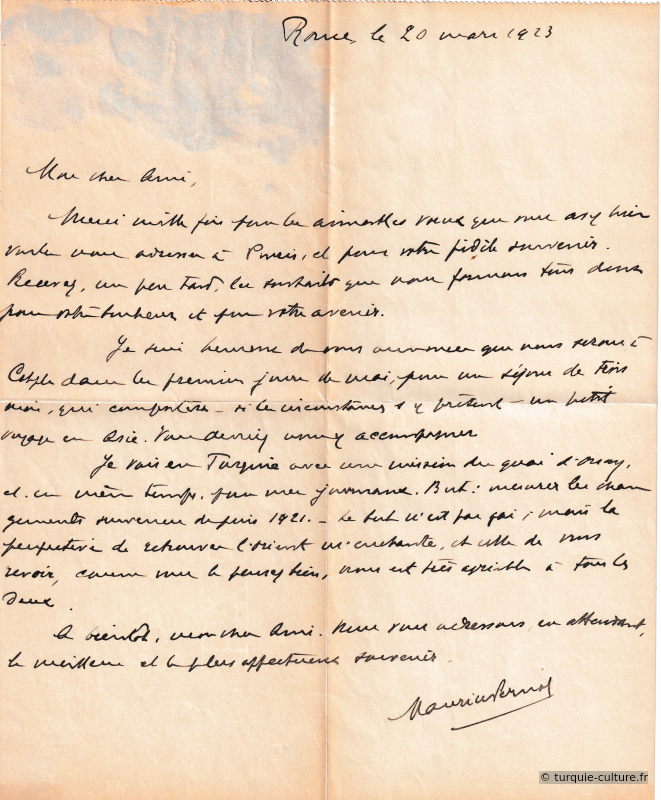 Rome, le 20 mars 1923
Mon cher Ami,
Merci mille fois pour les aimables vœux que vous avez bien
voulu nous adresser à Paris, et pour votre fidèle souvenir.
Recevez, un peu tard, les souhaits que nous formons tous deux
pour votre bonheur et pour votre avenir.
Je suis heureux de vous annoncer que nous serons à
Cstple dans les premiers jours de mai, pour un séjour de trois
mois, qui comportera – si les circonstances s'y prêtent – un petit
voyage en Asie. Vous devriez nous y accompagner
Je vais en Turquie avec une mission du quai d'Orsay,
et, en même temps, pour mes journaux. But : mesurer les chan
gements survenus depuis 1921. – Le but n'est pas gai ; mais la
perspective de retrouver l'orient m'enchante, et celle de vous
revoir, comme vous le pensez bien, nous est très agréable à tous les
deux.
A bientôt, mon cher Ami. Nous vous adressons, en attendant,
le meilleur et le plus affectueux souvenir.
Maurice Pernot
© turquie-culture.fr